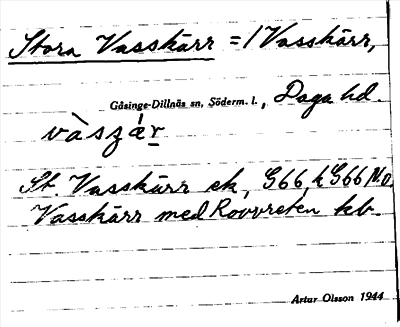 Stora Vasskärr = / Vasskärr,
Gåsinge-Dillnäs sn, Söderm. l., Daga hd.
vàszǽr
St. Vasskärr ek, G66, k G66 N.O.
Vasskärr med Rovvreten kb.
Artur Olsson 1944